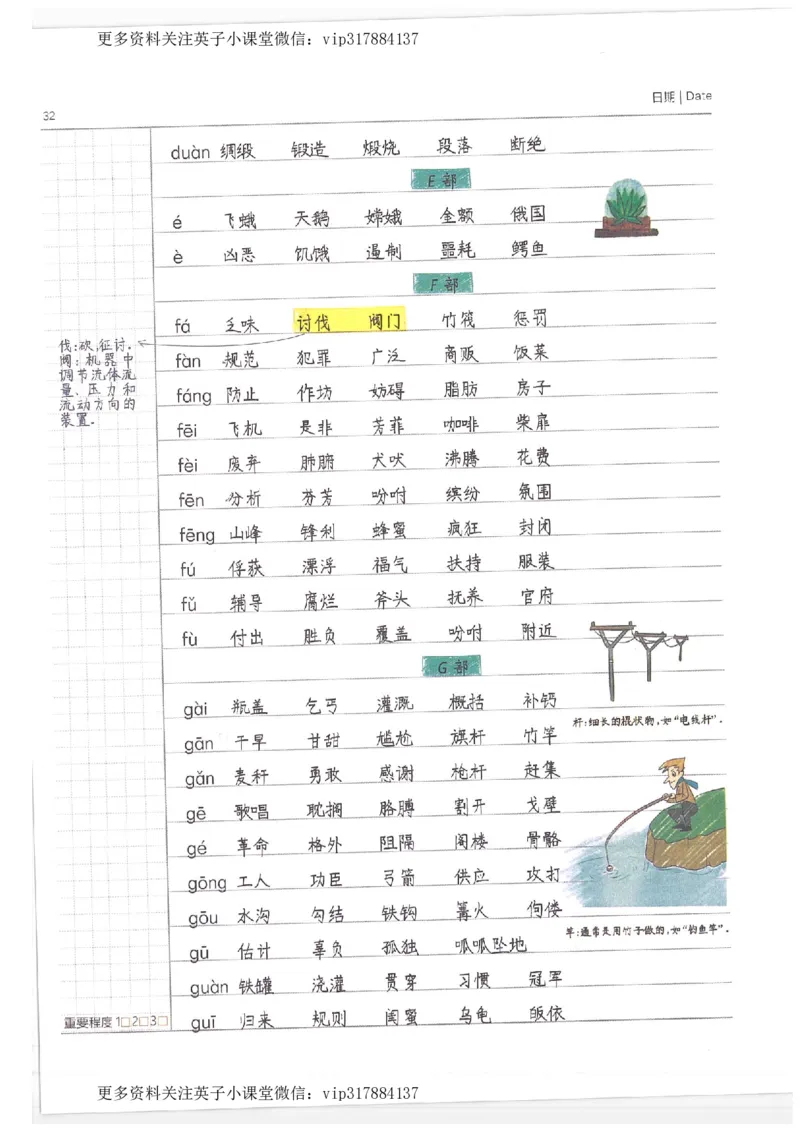 更多资料关注英子小课堂微信：vip317884137
日期 | Date
32
duàn 绸缎 锻造 煅烧 段落 断绝
E 部
é 飞蛾 天鹅 嫦娥 金额 俄国
è 凶恶 饥饿 遏制 噩耗 鳄鱼
F 部
fá 乏味 讨伐 阀门 竹筏 惩罚
伐：砍，征讨。
阀：机器中
调节流体流
量、压力和
流动方向的
装置。
fàn 规范 犯罪 广泛 商贩 饭菜
fáng 防止 作坊 妨碍 脂肪 房子
fēi 飞机 是非 芳菲 咖啡 柴扉
fèi 废弃 肺腑 犬吠 沸腾 花费
fēn 分析 芬芳 吩咐 缤纷 氛围
fēng 山峰 锋利 蜂蜜 疯狂 封闭
fú 俘获 漂浮 福气 扶持 服装
fǔ 辅导 腐烂 斧头 抚养 官府
fù 付出 胜负 覆盖 吩咐 附近
G 部
gài 瓶盖 乞丐 灌溉 概括 补钙
杆：细长的棍状物，如“电线杆”。
gān 干旱 甘甜 尴尬 旗杆 竹竿
gǎn 麦秆 勇敢 感谢 枪杆 赶集
gē 歌唱 耽搁 胳膊 割开 戈壁
gé 革命 格外 阻隔 阁楼 骨骼
gōng 工人 功臣 弓箭 供应 攻打
gōu 水沟 勾结 铁钩 篝火 佝偻
竿：通常是用竹子做的，如“钓鱼竿”。
gū 估计 辜负 孤独 呱呱坠地
guàn 铁罐 浇灌 贯穿 习惯 冠军
guī 归来 规则 闺蜜 乌龟 皈依
重要程度 1□2□3□
更多资料关注英子小课堂微信：vip317884137